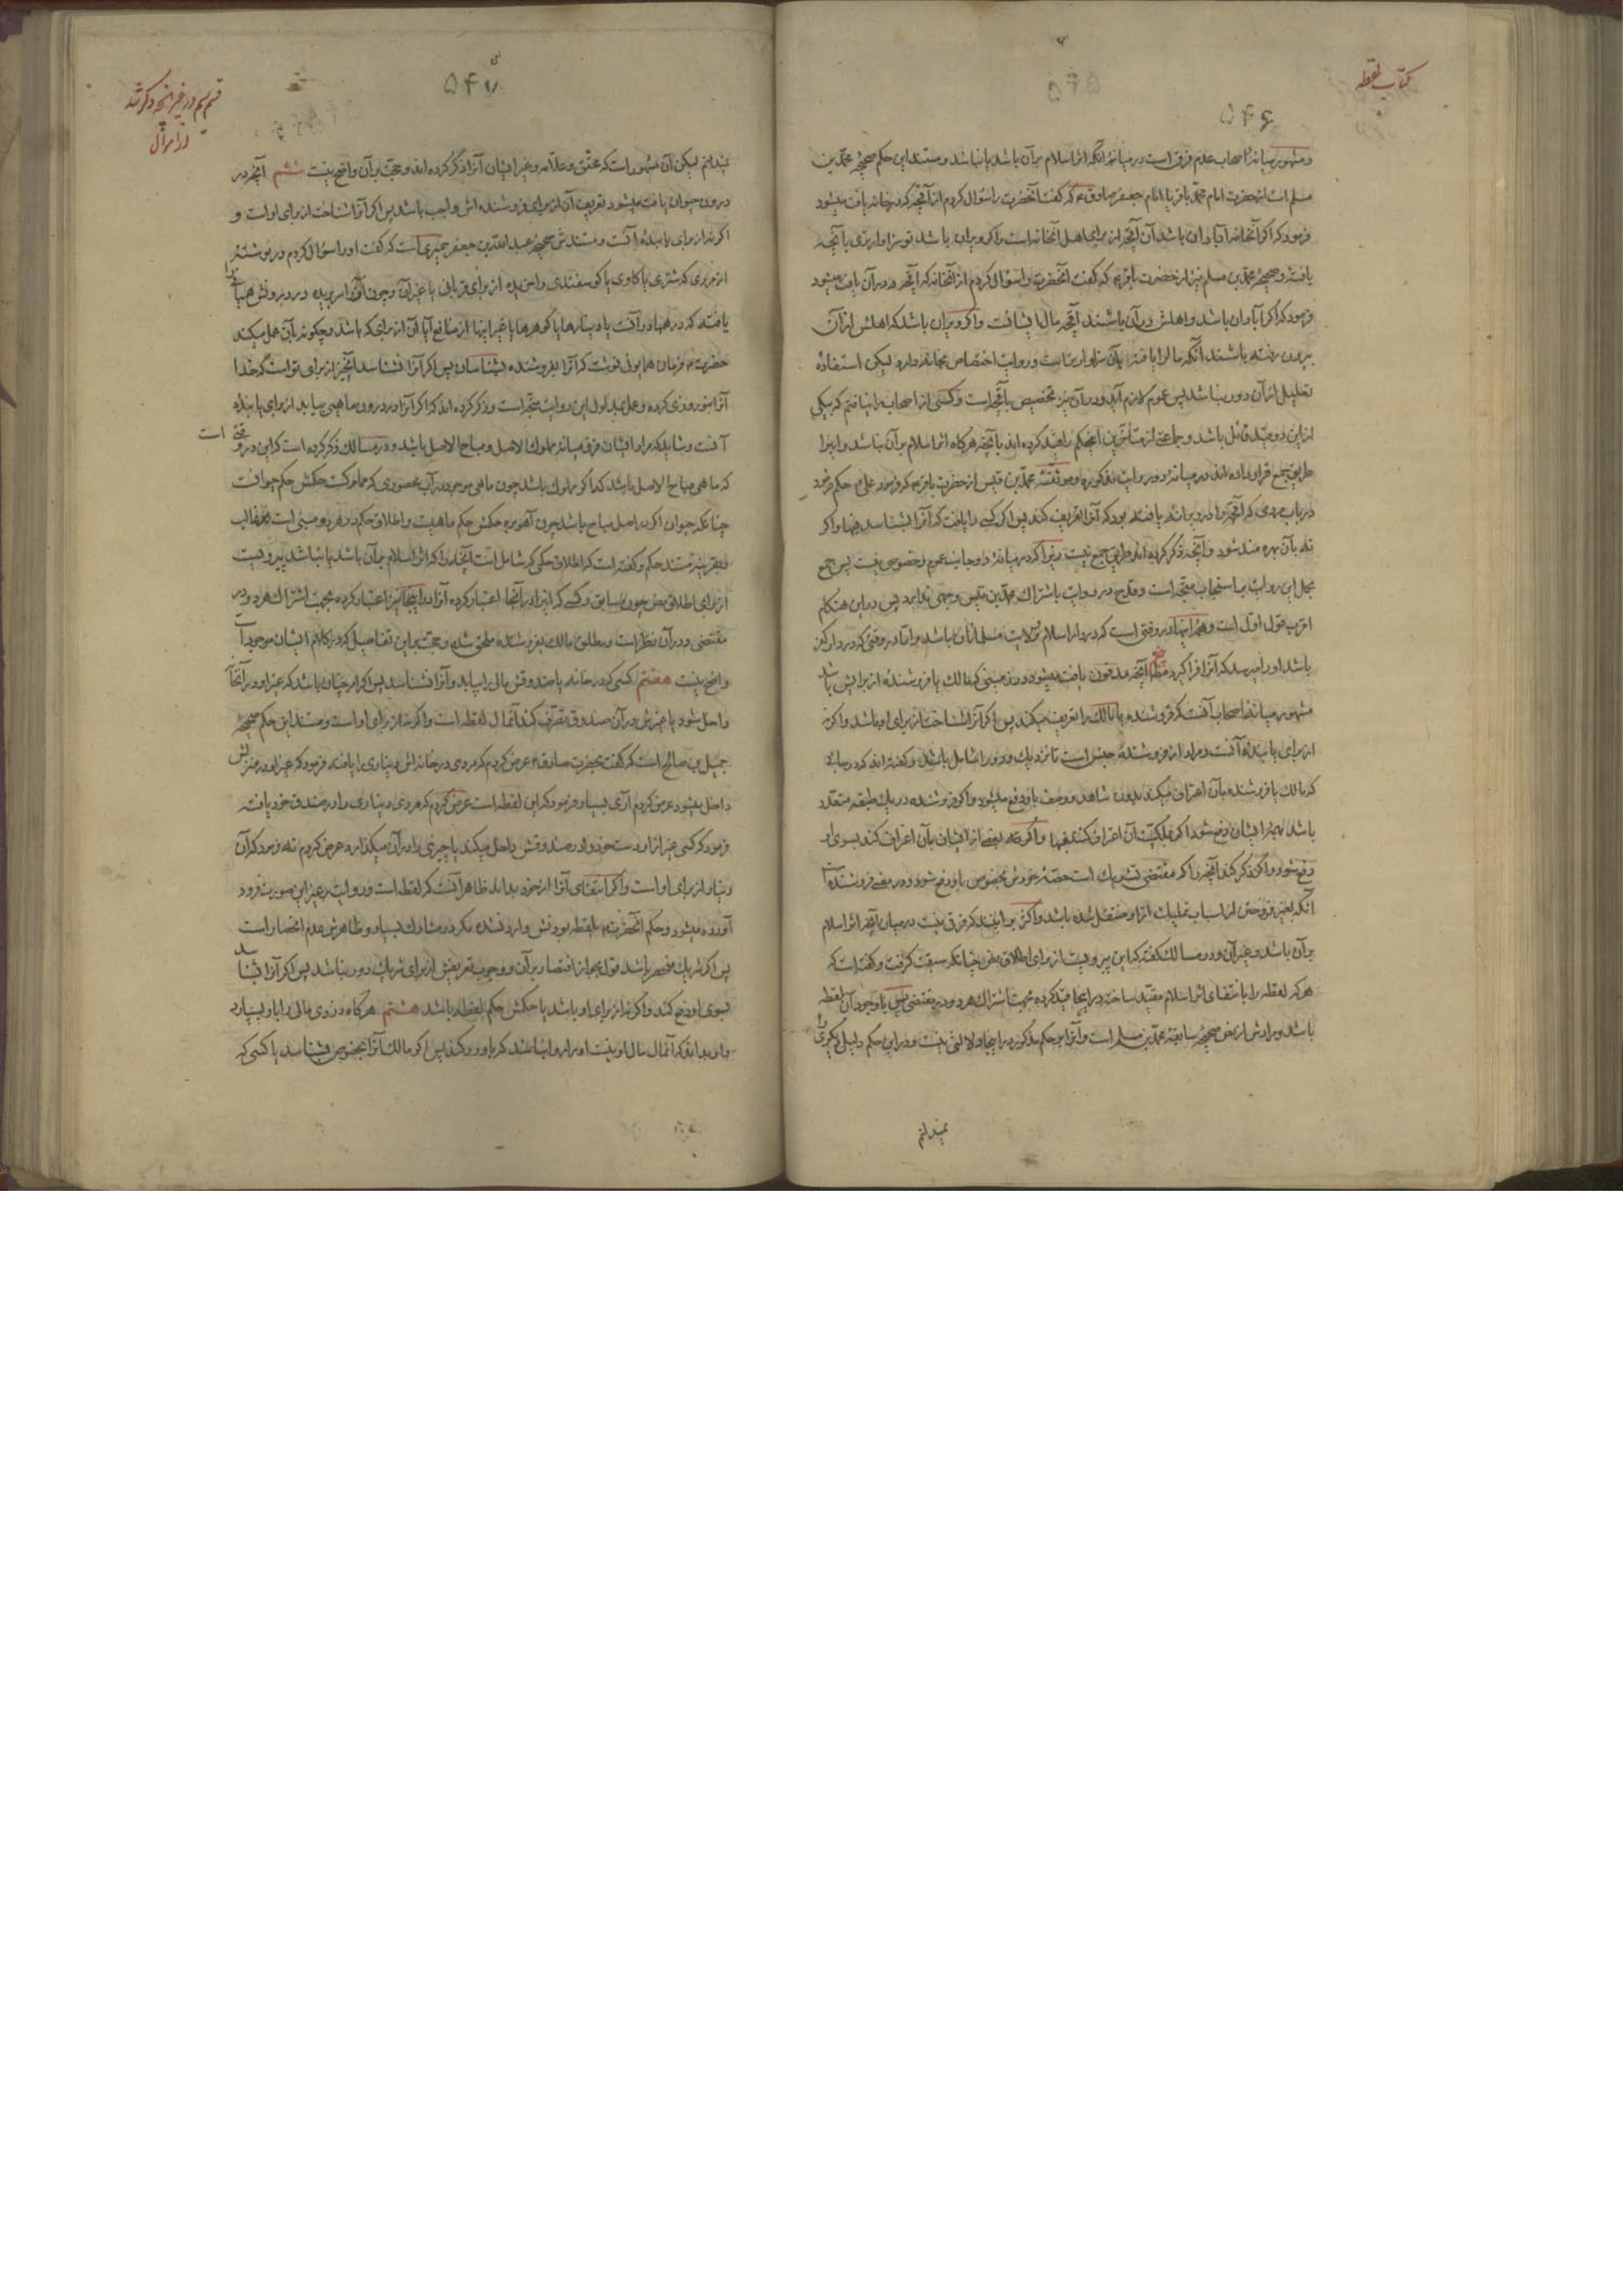 کتاب لقطه
۵۴۶
و مشهور میانهٔ اصحاب عدم فرق است در میانهٔ آنکه اثر اسلام بر آن باشد یا نباشد و مستند این حکم صحیحهٔ محمّد بن
مسلم است از حضرت امام محمّد باقر یا امام جعفر صادق ع که گفت آنحضرت را سؤال کردم از آنچه که در خانه یافت میشود
فرمود که اگر آنخانه آبادان باشد آن آنچه از برای اهل آنخانه است و اگر ویران باشد تو سزاوارتری با آنچه
یافتی و صحیحهٔ محمّد بن مسلم نیز از حضرت باقر ع که گفت آنحضرت را سؤال کردم از آنخانه که آنچه در آن یافت میشود
فرمود که اگر آبادان باشد و اهلش در آن باشند آنچه مال ایشانست و اگر ویران باشد که اهلش از آن
بیرون رفته باشند آنکه مال را یافته بآن سزاوارتر است و روایت اختصاص بخانه دارد لیکن استفادهٔ
تعلیل از آن دور نباشد پس عموم لازم آید و در آن نیز تخصیص بآنچه است و کسی از اصحاب را نیافتم که بیکی
از این دو قید قائل باشد و جماعتی از متأخرین اینحکم را قید کرده اند بآنچه هرگاه اثر اسلام بر آن نباشد و اینرا
طریق جمع قرار داده اند در میانهٔ دو روایت مذکوره و موثّقهٔ محمّد بن قیس از حضرت باقر ع که فرمود علی ع حکم فرمود
در باب مردی که آنچه را در ویرانه یافته بود که آنرا تعریف کند پس اگر کسی را یافت که آنرا بشناسد فبها و اگر
نه بآن بهره مند شود و آنچه ذکر کرده اند طریق جمع نیست زیرا که در میانهٔ دو جانب عموم و خصوصی نیست پس جمع
بحمل این روایت بر استحباب متّجه است و قدح در روایت باشتراک محمّد بن قیس وجهی ندارد پس در این هنگام
اقرب قول اوّل است و همهٔ اینها در وقتی است که در دار اسلام و ولایت مسلمانان باشد و امّا در وقتی که در دار کفر
باشد او را میرسد که آنرا فراگیرد مطلقا پنجم آنچه مدفون یافت میشود در زمینی که مالک یا فروشندهٔ از برایش باشد
مشهور میانهٔ اصحاب آنست که فروشنده یا مالک را تعریف میکند پس اگر آنرا شناخت از برای او باشد و اگر نه
از برای یابندهٔ آنست و مراد از فروشنده جنس است تا نزدیک و دور را شامل باشد و گفته اند که در جائی
که مالک یا فروشنده بآن اعتراف میکند بدون شاهد و وصف باو دفع میشود و اگر فروشنده در یک طبقه متعدّد
باشد بهمهٔ ایشان دفع شود اگر بملکیّت آن اعتراف کنند فبها و اگر نه بعضی از ایشان بآن اعتراف کند بسوی او
دفع شود و اگر ذکر کند آنچه را که مقتضی تشریک است حصّهٔ خودش بخصوص باو دفع شود و در معنی فروشنده است
آنکه بغیر فروختن از اسباب تملیک از او منتقل شده باشد و اکثر بر اینند که فرق نیست در میان آنچه اثر اسلام
بر آن باشد و غیر آن و در مسالک گفته که این پیرویست از برای اطلاق نص چنانکه سبقت گرفت و گفته است که
هر که لقطه را بانتفای اثر اسلام مقیّد ساخته در اینجا قید کرده بجهت اشتراک هر دو در مقتضی پس با وجود آن لقطه
باشد و مرادش از نص صحیحهٔ سابقهٔ محمّد بن مسلم است و آنرا بر حکم مذکور در اینجا دلالتی نیست و در این حکم دلیل دیگری را
نمیدانم
قسم سیم در غیر آنچه ذکر شد
از اموال
۵۴۷
نمیدانم لیکن آن مشهور است که محقّق و علّامه و غیر ایشان آنرا ذکر کرده اند و حجّت بر آن واضح نیست ششم آنچه در
درون حیوان یافت میشود تعریف آن از برای فروشنده اش واجب باشد پس اگر آنرا شناخت از برای او است و
اگر نه از برای یابندهٔ آنست و مستندش صحیحهٔ عبد اللّه بن جعفر حمیری است که گفت او را سؤال کردم در نوشتهٔ
از مردی که شتری یا گاوی یا گوسفندی را خریده از برای قربانی یا غیر آن و چون آنرا سر بریده در درونش همیانی را
یافته که درهمها در آنست یا دینارها یا گوهرها یا غیر اینها از منافع آیا آن از برای که باشد و چگونه بآن عمل میکند
حضرت ع فرمان همایونی نوشت که آنرا بفروشنده بشناسان پس اگر آنرا نشناسد آنچیز از برای تو است که خدا
آنرا بتو روزی کرده و عمل بمدلول این روایت متّجه است و ذکر کرده اند که اگر آنرا در درون ماهیی بیابد از برای یابندهٔ
آنست و شاید که مراد ایشان فرق میانهٔ مملوک الاصل و مباح الاصل باشد و در مسالک ذکر کرده است که این در وقتی است
که ماهی مباح الاصل باشد که اگر مملوک باشد چون ماهی موجود در آب محصوری که مملوکست حکمش حکم حیوانست
چنانکه حیوان اگر در اصل مباح باشد چون آهو بره حکمش حکم ماهیست و اطلاق حکم در هر دو مبنی است بر غالب
بقرینهٔ مستند حکم و گفته است که اطلاق حکمی که شامل است آنچه را که اثر اسلام بر آن باشد یا نباشد پیرویست
از برای اطلاق نص چون سابق و کسی که اثر را در آنجا اعتبار کرده آنرا در اینجا نیز اعتبار کرده بجهت اشتراک هر دو در
مقتضی و در آن نظر است و مطلق مالک بفروشنده ملحق شده و حجّت بر این تفاصیل که در کلام ایشان موجود است
واضح نیست هفتم کسی که در خانه یا صندوقش مالی را بیابد و آنرا نشناسد پس اگر امر چنان باشد که غیر او در آنخانه
داخل شود یا غیرش در آن صندوق تصرّف کند آنمال لقطه است و اگر نه از برای او است و مستند این حکم صحیحهٔ
جمیل بن صالح است که گفت بحضرت صادق ع عرض کردم که مردی در خانه اش دیناری را یافته فرمود که غیر او در منزلش
داخل میشود عرض کردم آری بسیار فرمود که این لقطه است عرض کردم که مردی دیناری را در صندوق خود یافته
فرمود که کسی غیر از او دست خود را در صندوقش داخل میکند یا چیزی را در آن میگذارد عرض کردم نه فرمود که آن
دینار از برای او است و اگر انتفای آنرا از خود بداند ظاهر آنست که لقطه است و روایت بر غیر این صورت فرود
آورده میشود و حکم آنحضرت ع بلقطه بودنش وارد نشده مگر در مشارک بسیار و ظاهرش عدم انحصار است
پس اگر شریک منحصر باشد قول بجواز اقتصار بر آن و وجوب تعریفش از برای شریک دور نباشد پس اگر آنرا بشناسد
بسوی او دفع کند و اگر نه از برای او باشد یا حکمش حکم لقطه باشد هشتم هرگاه دزدی مالی را باو بسپارد
و او بداند که آنمال مال او نیست او را روا نباشد که باو رد کند پس اگر مالک آنرا بخصوص بشناسد یا کسی که